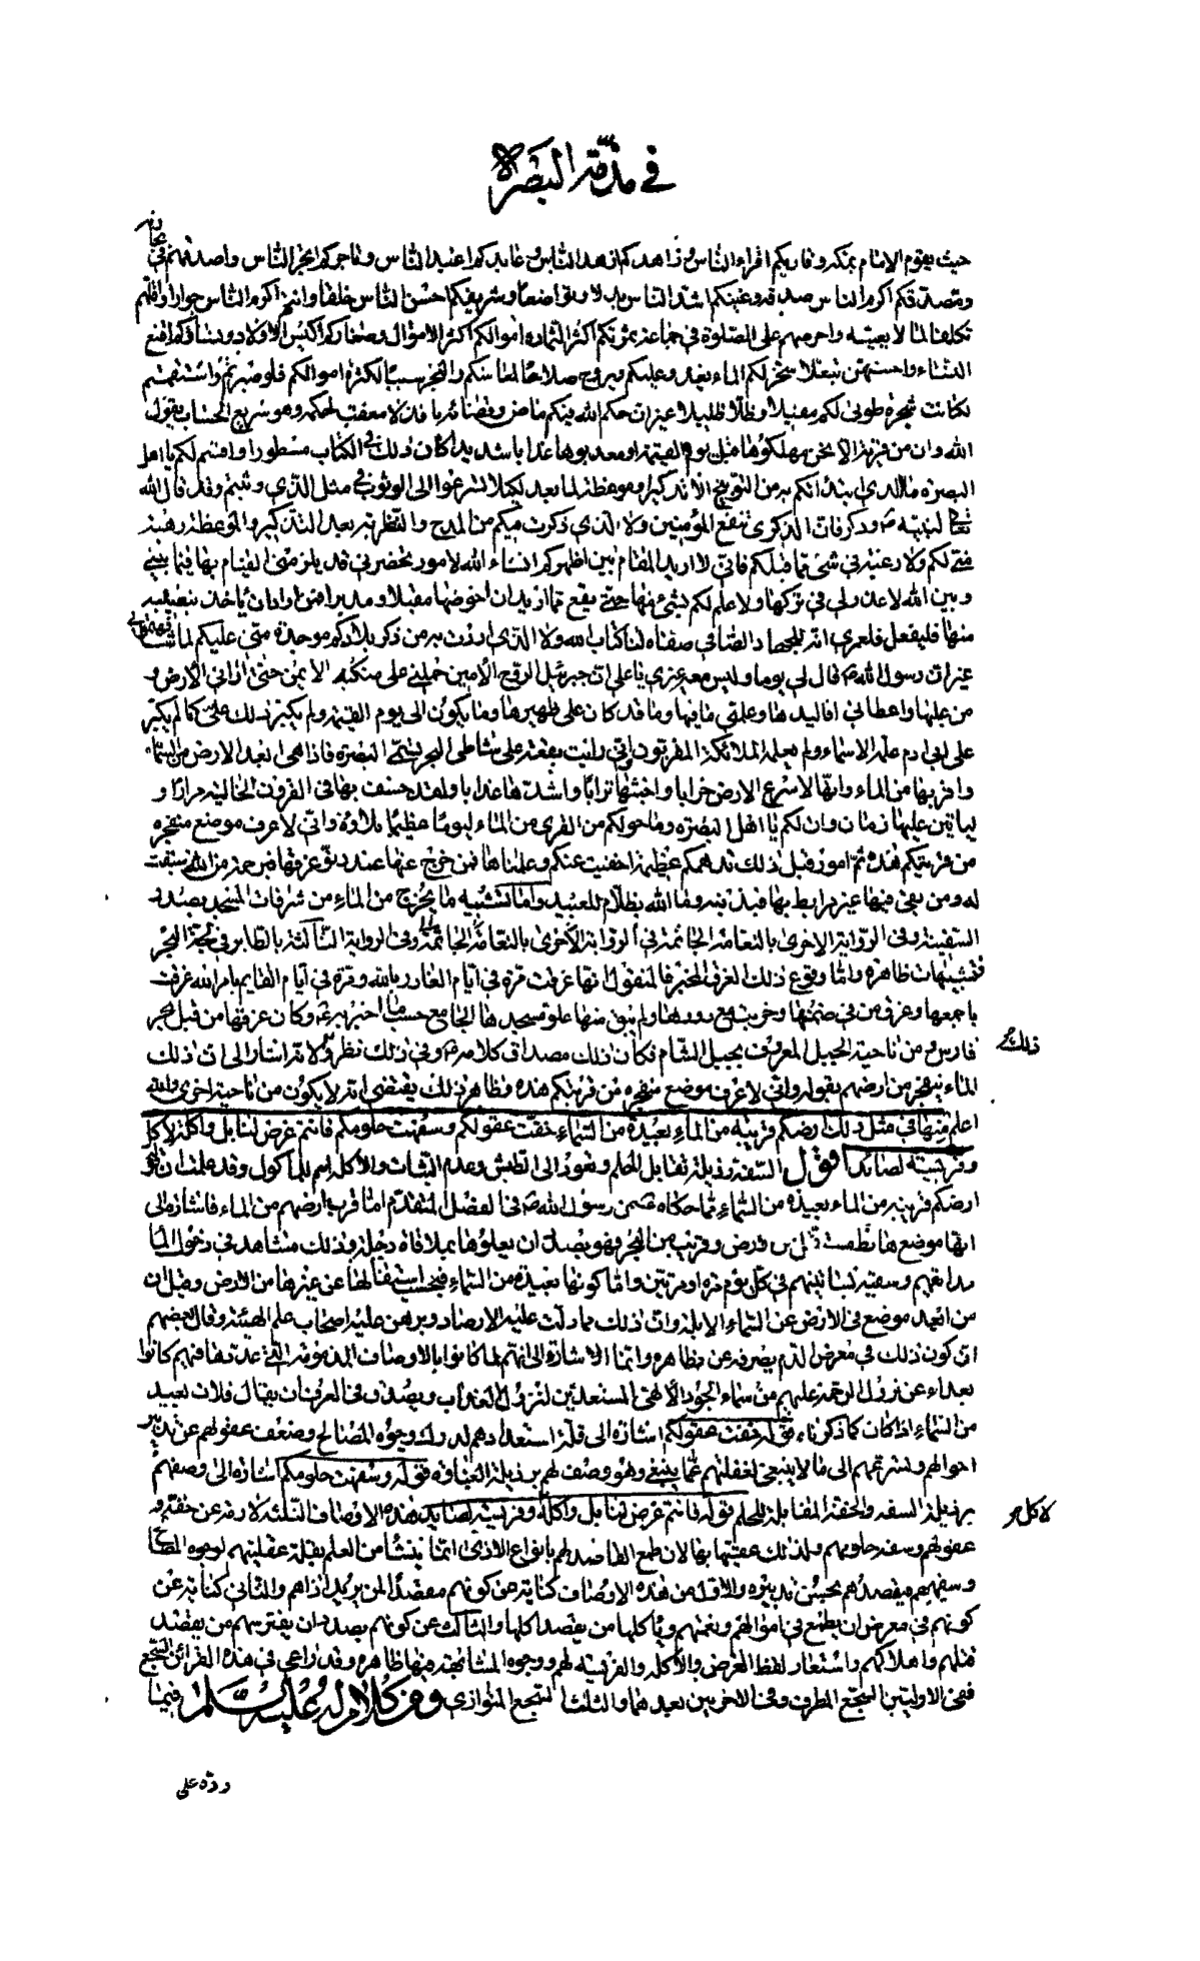 في مذمة البصرة
حيث يقوم الامام بمكة وقاريكم اقراء الناس وزاهدكم ازهد الناس وعابدكم اعبد الناس وتاجركم اتجر الناس واصدقهم في تجارته
ومتصدقكم اكرم الناس صدقة وغنيكم اشد الناس بذلا وتواضعا وشريفكم احسن الناس خلقا وانتم اكرم الناس جوارا واقلهم
تكلفا لما لا يعنيه واحرصهم على الصلوة في جماعة ثمرتكم اكثر الثمار واموالكم اكثر الاموال وصغاركم اكيس الاولاد ونساؤكم اقنع
النساء واحسنهن تبعلا سخر لكم الماء يغدو عليكم ويروح صلاحا لمعاشكم والبحر سببا لكثرة اموالكم فلو صبرتم واستقمتم
لكانت شجرة طوبى لكم مقيلا وظلا ظليلا غير ان حكم الله فيكم ماض وقضائه نافذ لا معقب لحكمه وهو سريع الحساب يقول
الله وان من قرية الا نحن مهلكوها قبل يوم القيمة او معذبوها عذابا شديدا كان ذلك في الكتاب مسطورا واقسم لكم يا اهل
البصرة ما الذي ابتداتكم به من التوبيخ الا تذكير وموعظة لما بعد لكيلا تسرعوا الى الوثوب في مثل الذي وثبتم وقد قال الله
تعالى لنبيه ص وذكر فان الذكرى تنفع المؤمنين ولا الذي ذكرت فيكم من المدح والتطرية بعد التذكير والموعظة رهبة
مني لكم ولا رغبة في شئ مما قبلكم فاني لا اريد المقام بين اظهركم انشاء الله لامور تحضرني قد يلزمني القيام بها فيما بيني
وبين الله لا عذر لي في تركها ولا علم لكم بشئ منها حتى يقع مما اريد ان اخوضها مقبلا ومدبرا فمن اراد ان ياخذ بنصيبه
منها فليفعل فلعمري انه للجهاد الصافي صفاه لنا كتاب الله ولا الذي اردت به من ذكر بلادكم موجدة مني عليكم لما شاققتموني
غير ان رسول الله ص قال لي يوما وليس معه غيري يا علي ان جبرئيل الروح الامين حملني على منكبه الايمن حتى اراني الارض و
من عليها واعطاني اقاليدها وعلمني ما فيها وما قد كان على ظهرها وما يكون الى يوم القيمة ولم يكبر ذلك علي كما لم يكبر
على ابي ادم علمه الاسماء ولم يعلمه الملائكة المقربون واني رايت بقعة على شاطئ البحر تسمى البصرة فاذا هي ابعد الارض من السماء
واقربها من الماء وانها لاسرع الارض خرابا واخبثها ترابا واشدها عذابا ولقد خسف بها في القرون الخالية مرارا و
ليأتين عليها زمان وان لكم يا اهل البصرة وما حولكم من القرى من الماء ليوما عظيما بلاؤه واني لاعرف موضع منفجره
من قريتكم هذه ثم امور قبل ذلك تدهمكم عظيمة اخفيت عنكم وعلمناها فمن خرج عنها عند دنو غرقها فبرحمة من الله سبقت
له ومن بقي فيها غير مرابط بها فبذنبه وما الله بظلام للعبيد واما تشبيه ما يخرج من الماء من شرفات المسجد بصدر
السفينة وفي الرواية الاخرى بالنعامة الجاثمة في الرواية الاخرى بالنعامة الجاثمة وفي الرواية الثالثة بالطاير في لجة البحر
فتشبيهات ظاهرة واما وقوع ذلك الغرق المخبر فالمنقول انها غرقت مرة في ايام القادر بالله ومرة في ايام القايم بامر الله غرقت
باجمعها وغرق من في ضمنها وخربت دورها ولم يبق منها علو مسجدها الجامع حسب ما اخبر به ع وكان غرقها من قبل بحر
فارس ومن ناحية الجبل المعروف بجبل السنام فكان ذلك مصداق كلامه ع وفي ذلك نظر لانه اشار الى ان ذلك
ذلك
الماء ينفجر من ارضهم بقوله واني لاعرف موضع منفجره من قريتكم هذه وظاهر ذلك يقتضي انه لا يكون من ناحية اخرى والله
اعلم منها في مثل ذلك ارضكم قريبة من الماء بعيدة من السماء خفت عقولكم وسفهت حلومكم فانتم غرض لنابل واكلة لاكل
وفريسة لصائد اقول السفه رذيلة تقابل الحلم ويعود الى الطيش وعدم الثبات والاكلة اسم للماكول وقد علمت ان
ارضكم قريبة من الماء بعيدة من السماء مما حكاه ع من رسول الله ص في الفصل المتقدم اما قرب ارضهم من الماء فاشارة الى
انها موضع هابط من الارض وقريب من البحر فهو بصدد ان يعلوها بملاقاة دجلة وذلك مشاهد في دخول الماء
حدائقهم وسقيه لبساتينهم في كل يوم مرة او مرتين واما كونها بعيدة من السماء فبحسب استفالها عن غيرها من الارض وقيل ان
من ابعد موضع في الارض عن السماء الابلة وان ذلك مما دلت عليه الارصاد وبرهن عليه اصحاب علم الهيئة وقال بعضهم
ان كون ذلك في معرض الذم يصرفه عن ظاهره وانما الاشارة الى انهم لما كانوا بالاوصاف المذمومة التي عددها فيهم كانوا
بعداء عن نزول الرحمة عليهم من سماء الجود الالهي مستعدين لنزول العذاب ويصدق في العرف ان يقال فلان بعيد
من السماء اذا كان كما ذكرناه قوله خفت عقولكم اشارة الى قلة استعدادهم لدرك وجوه المصالح وضعف عقولهم عن تدبير
احوالهم وتسرعهم الى ما لا ينبغي لغفلتهم عما ينبغي وهو وصف لهم برذيلة الغباوة قوله وسفهت حلومكم اشارة الى وصفهم
برذيلة السفه والخفة المقابلة للحلم قوله فانتم غرض لنابل واكلة وفريسة لصايد هذه الاوصاف الثلثة لازمة عن خفة
لاكل
عقولهم وسفه حلومهم ولذلك عقبها بها لان طمع القاصد لهم بانواع الاذى انما ينشأ من العلم بقلة عقليتهم لوجوه المصالح
وسفههم فيقصدهم بحسن تدبيره والاول من هذه الاوصاف كناية عن كونهم مقصدا لمن يريد اذاهم والثاني كناية عن
كونهم في معرض ان يطمع في اموالهم ونعمهم وياكلها من يقصد اكلها والثالث عن كونهم بصدد ان يفترسهم من يقصد
قتلهم واهلاكهم واستعار لفظ الغرض والاكلة والفريسة لهم ووجوه المشابهة فيها ظاهرة وقد راعى في هذه القرائن السجع
ففي الاوليين السجع المطرف وفي الاخريين بعدهما والثلث السجع المتوازي ومن كلام له عليه السلام فيما
رده على